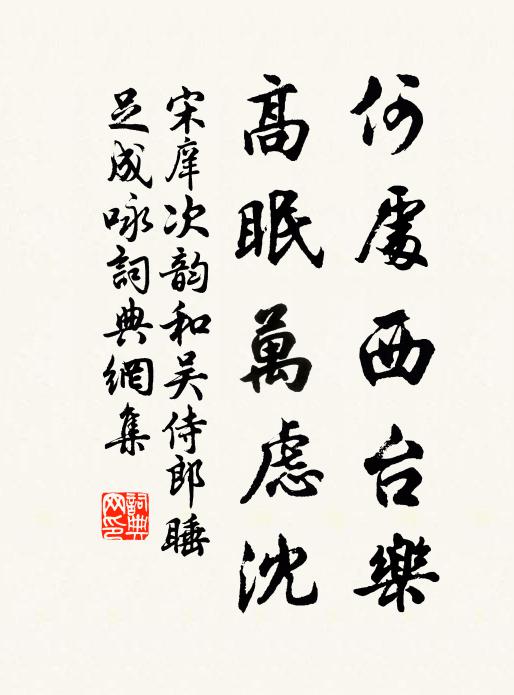 何處西台樂
高眠萬慮沈
宋庠次韵和吴侍郎睡
足成咏詞典網集
詞典网印